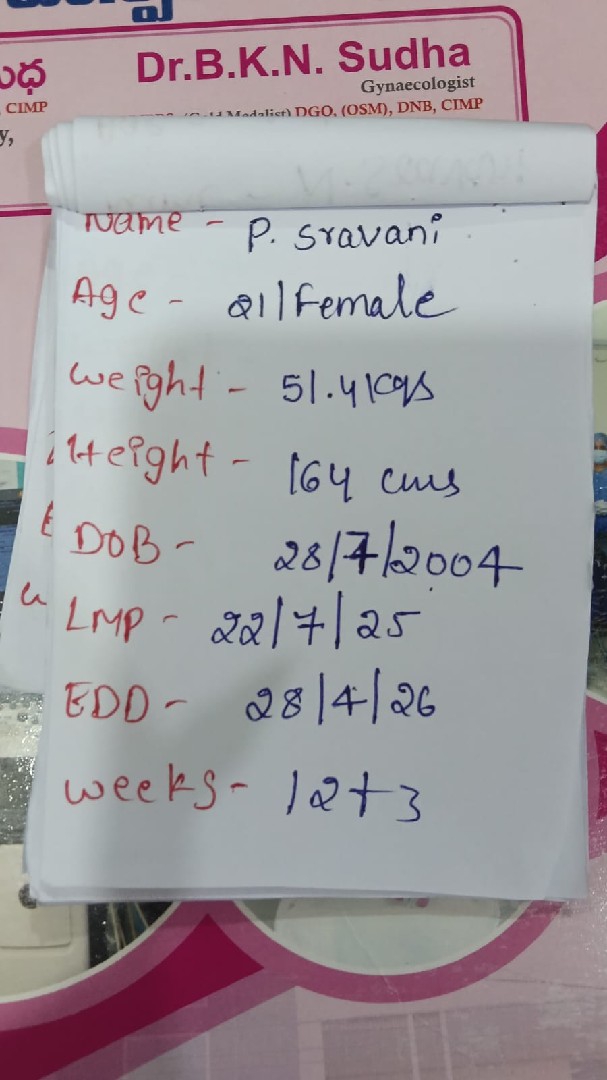 ధ
Dr.B.K.N. Sudha
Gynaecologist
, CIMP
Medalist) DGO, (OSM), DNB, CIMP
y,
Name - P. Sravani
Age - 21/Female
Weight - 51.4 kgs
Height - 164 cms
DOB - 28/7/2004
LMP - 22/7/25
EDD - 28/4/26
weeks - 12+3